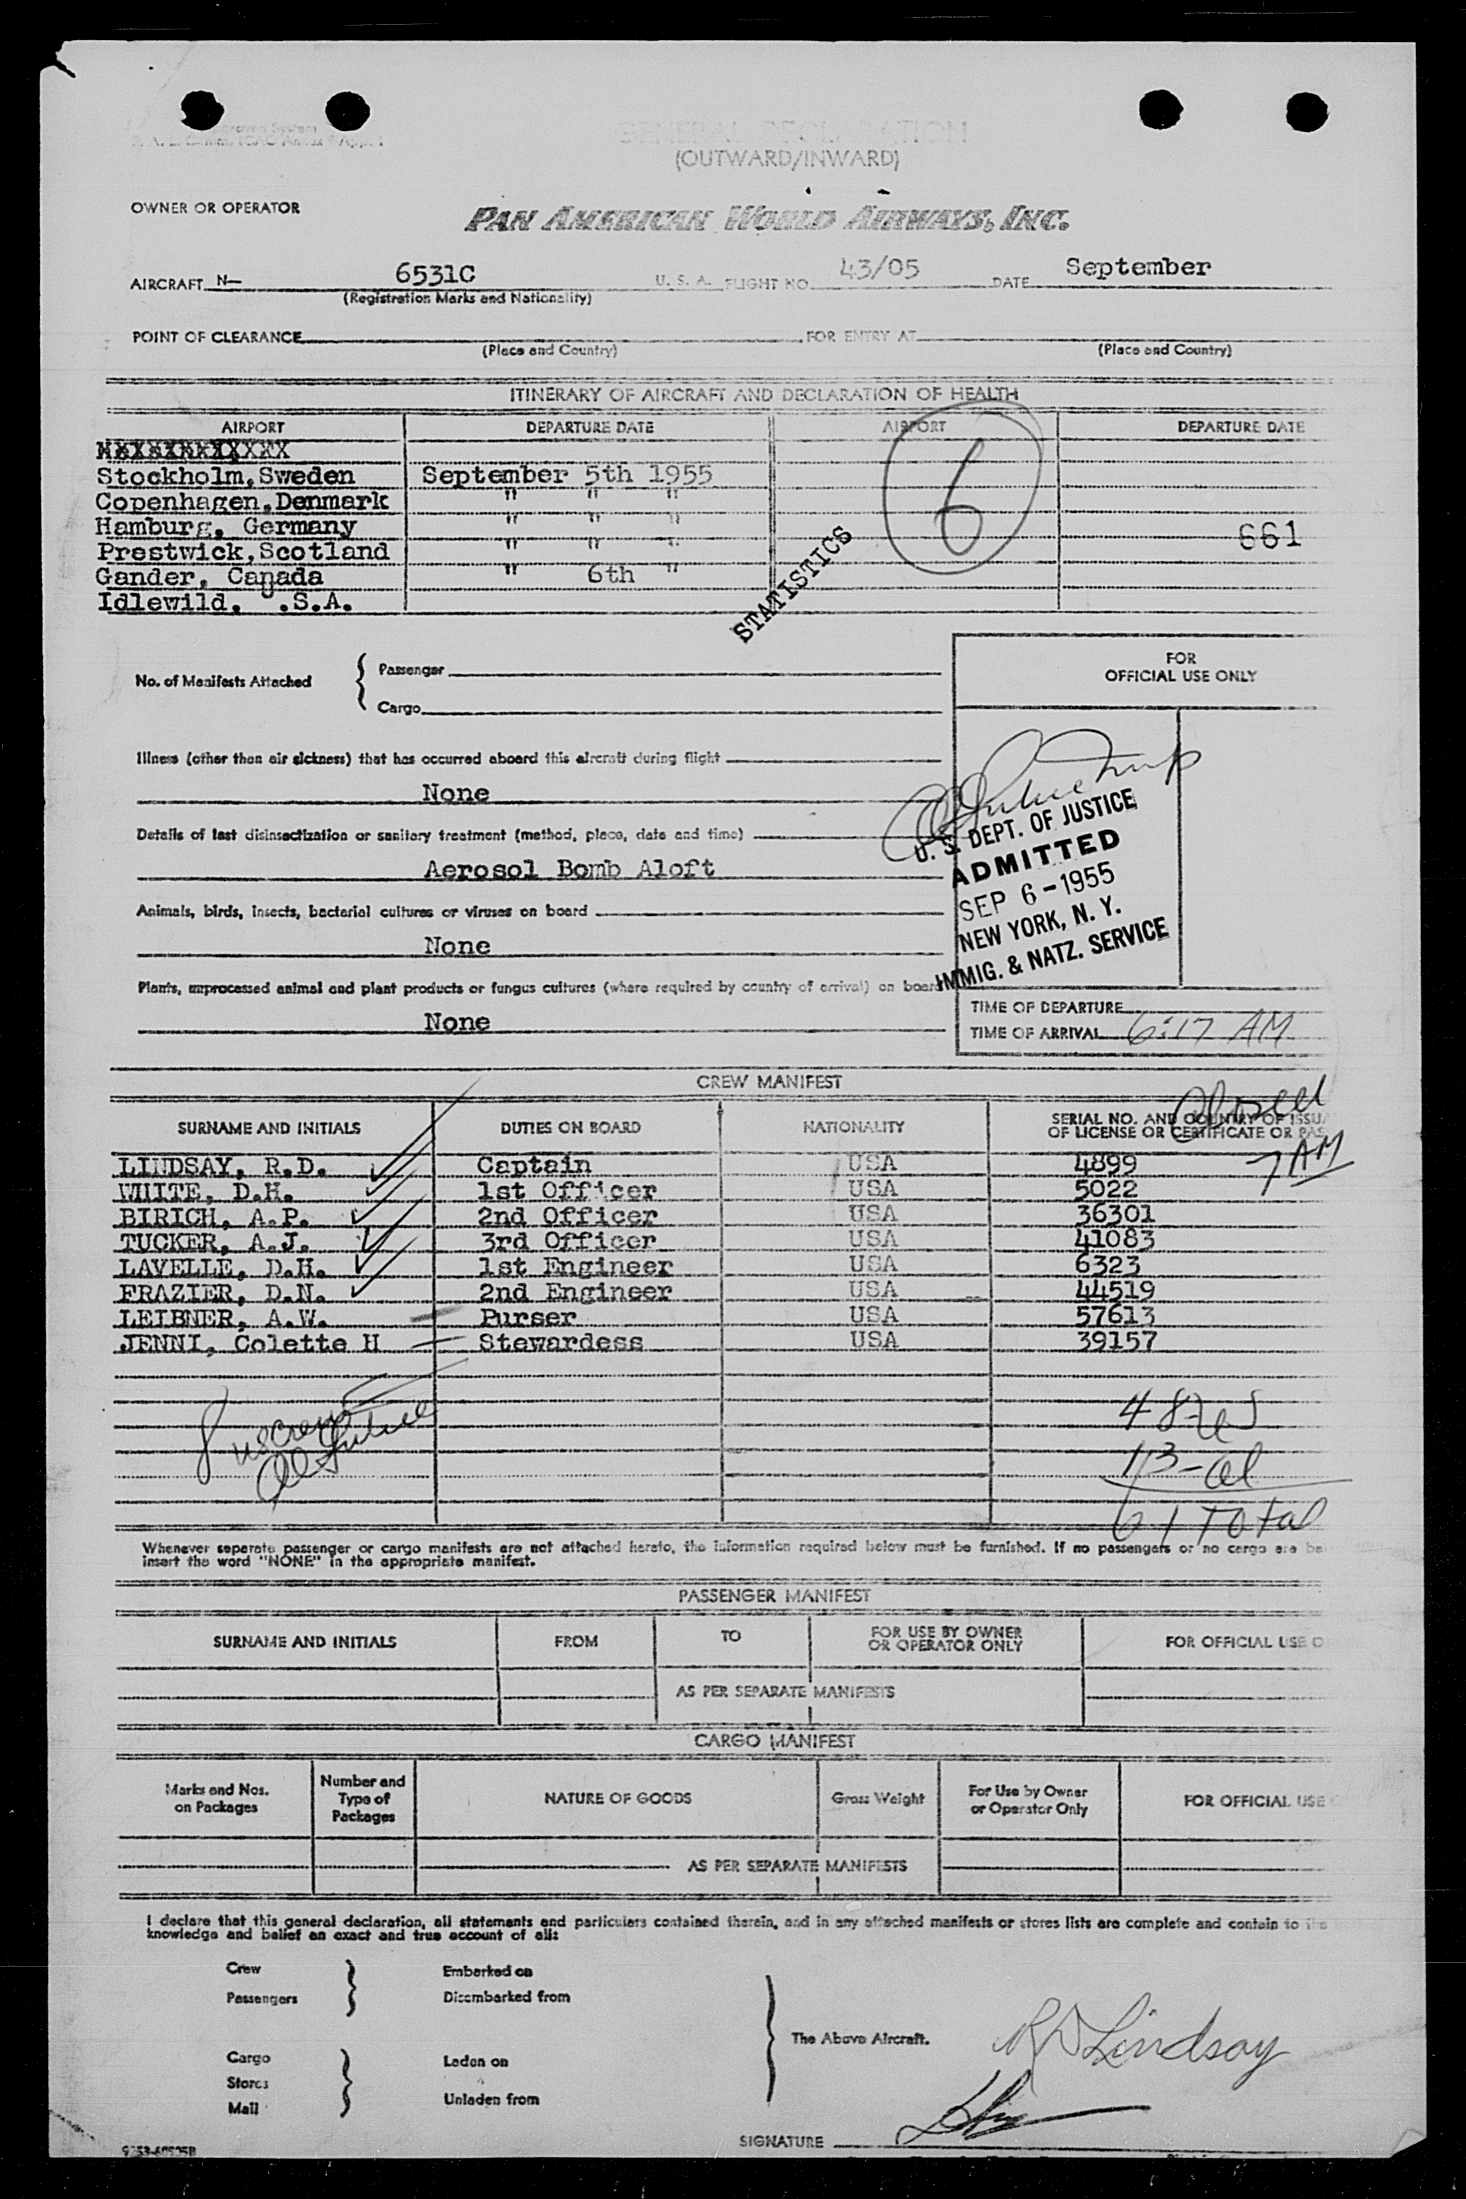 GENERAL DECLARATION
(OUTWARD/INWARD)
OWNER OR OPERATOR PAN AMERICAN WORLD AIRWAYS, INC.
AIRCRAFT N— 6531C U. S. A. FLIGHT NO. 43/05 DATE September
(Registration Marks and Nationality)
POINT OF CLEARANCE FOR ENTRY AT
(Place and Country) (Place and Country)
ITINERARY OF AIRCRAFT AND DECLARATION OF HEALTH
AIRPORT DEPARTURE DATE AIRPORT DEPARTURE DATE
Stockholm, Sweden September 5th 1955
Copenhagen, Denmark " " "
Hamburg, Germany " " "
Prestwick, Scotland " " "
Gander, Canada " 6th "
Idlewild, U.S.A.
6
661
STATISTICS
No. of Manifests Attached { Passenger
Cargo
FOR
OFFICIAL USE ONLY
Illness (other than air sickness) that has occurred aboard this aircraft during flight
None
Details of last disinsectization or sanitary treatment (method, place, date and time)
Aerosol Bomb Aloft
Animals, birds, insects, bacterial cultures or viruses on board
None
Plants, unprocessed animal and plant products or fungus cultures (where required by country of arrival) on board
None
U. S. DEPT. OF JUSTICE
ADMITTED
SEP 6-1955
NEW YORK, N. Y.
IMMIG. & NATZ. SERVICE
TIME OF DEPARTURE
TIME OF ARRIVAL 6:17 AM
CREW MANIFEST
SURNAME AND INITIALS DUTIES ON BOARD NATIONALITY SERIAL NO. AND COUNTRY OF ISSU
OF LICENSE OR CERTIFICATE OR PAS
7 AM
LINDSAY, R.D. Captain USA 4899
WHITE, D.H. 1st Officer USA 5022
BIRICH, A.P. 2nd Officer USA 36301
TUCKER, A.J. 3rd Officer USA 41083
LAVELLE, D.H. 1st Engineer USA 6323
FRAZIER, D.N. 2nd Engineer USA 44519
LEIBNER, A.W. Purser USA 57613
JENNI, Colette H Stewardess USA 39157
8 US Crew
48-US
13-al
61 Total
Whenever separate passenger or cargo manifests are not attached hereto, the information required below must be furnished. If no passengers or no cargo are
insert the word "NONE" in the appropriate manifest.
PASSENGER MANIFEST
SURNAME AND INITIALS FROM TO FOR USE BY OWNER
OR OPERATOR ONLY FOR OFFICIAL USE O
AS PER SEPARATE MANIFESTS
CARGO MANIFEST
Marks and Nos.
on Packages Number and
Type of
Packages NATURE OF GOODS Gross Weight For Use by Owner
or Operator Only FOR OFFICIAL USE
AS PER SEPARATE MANIFESTS
I declare that this general declaration, all statements and particulars contained therein, and in any attached manifests or stores lists are complete and contain to the
knowledge and belief an exact and true account of all:
Crew Embarked on
Passengers Disembarked from
The Above Aircraft.
Cargo Laden on
Stores
Mail Unladen from
RD Lindsay
SIGNATURE